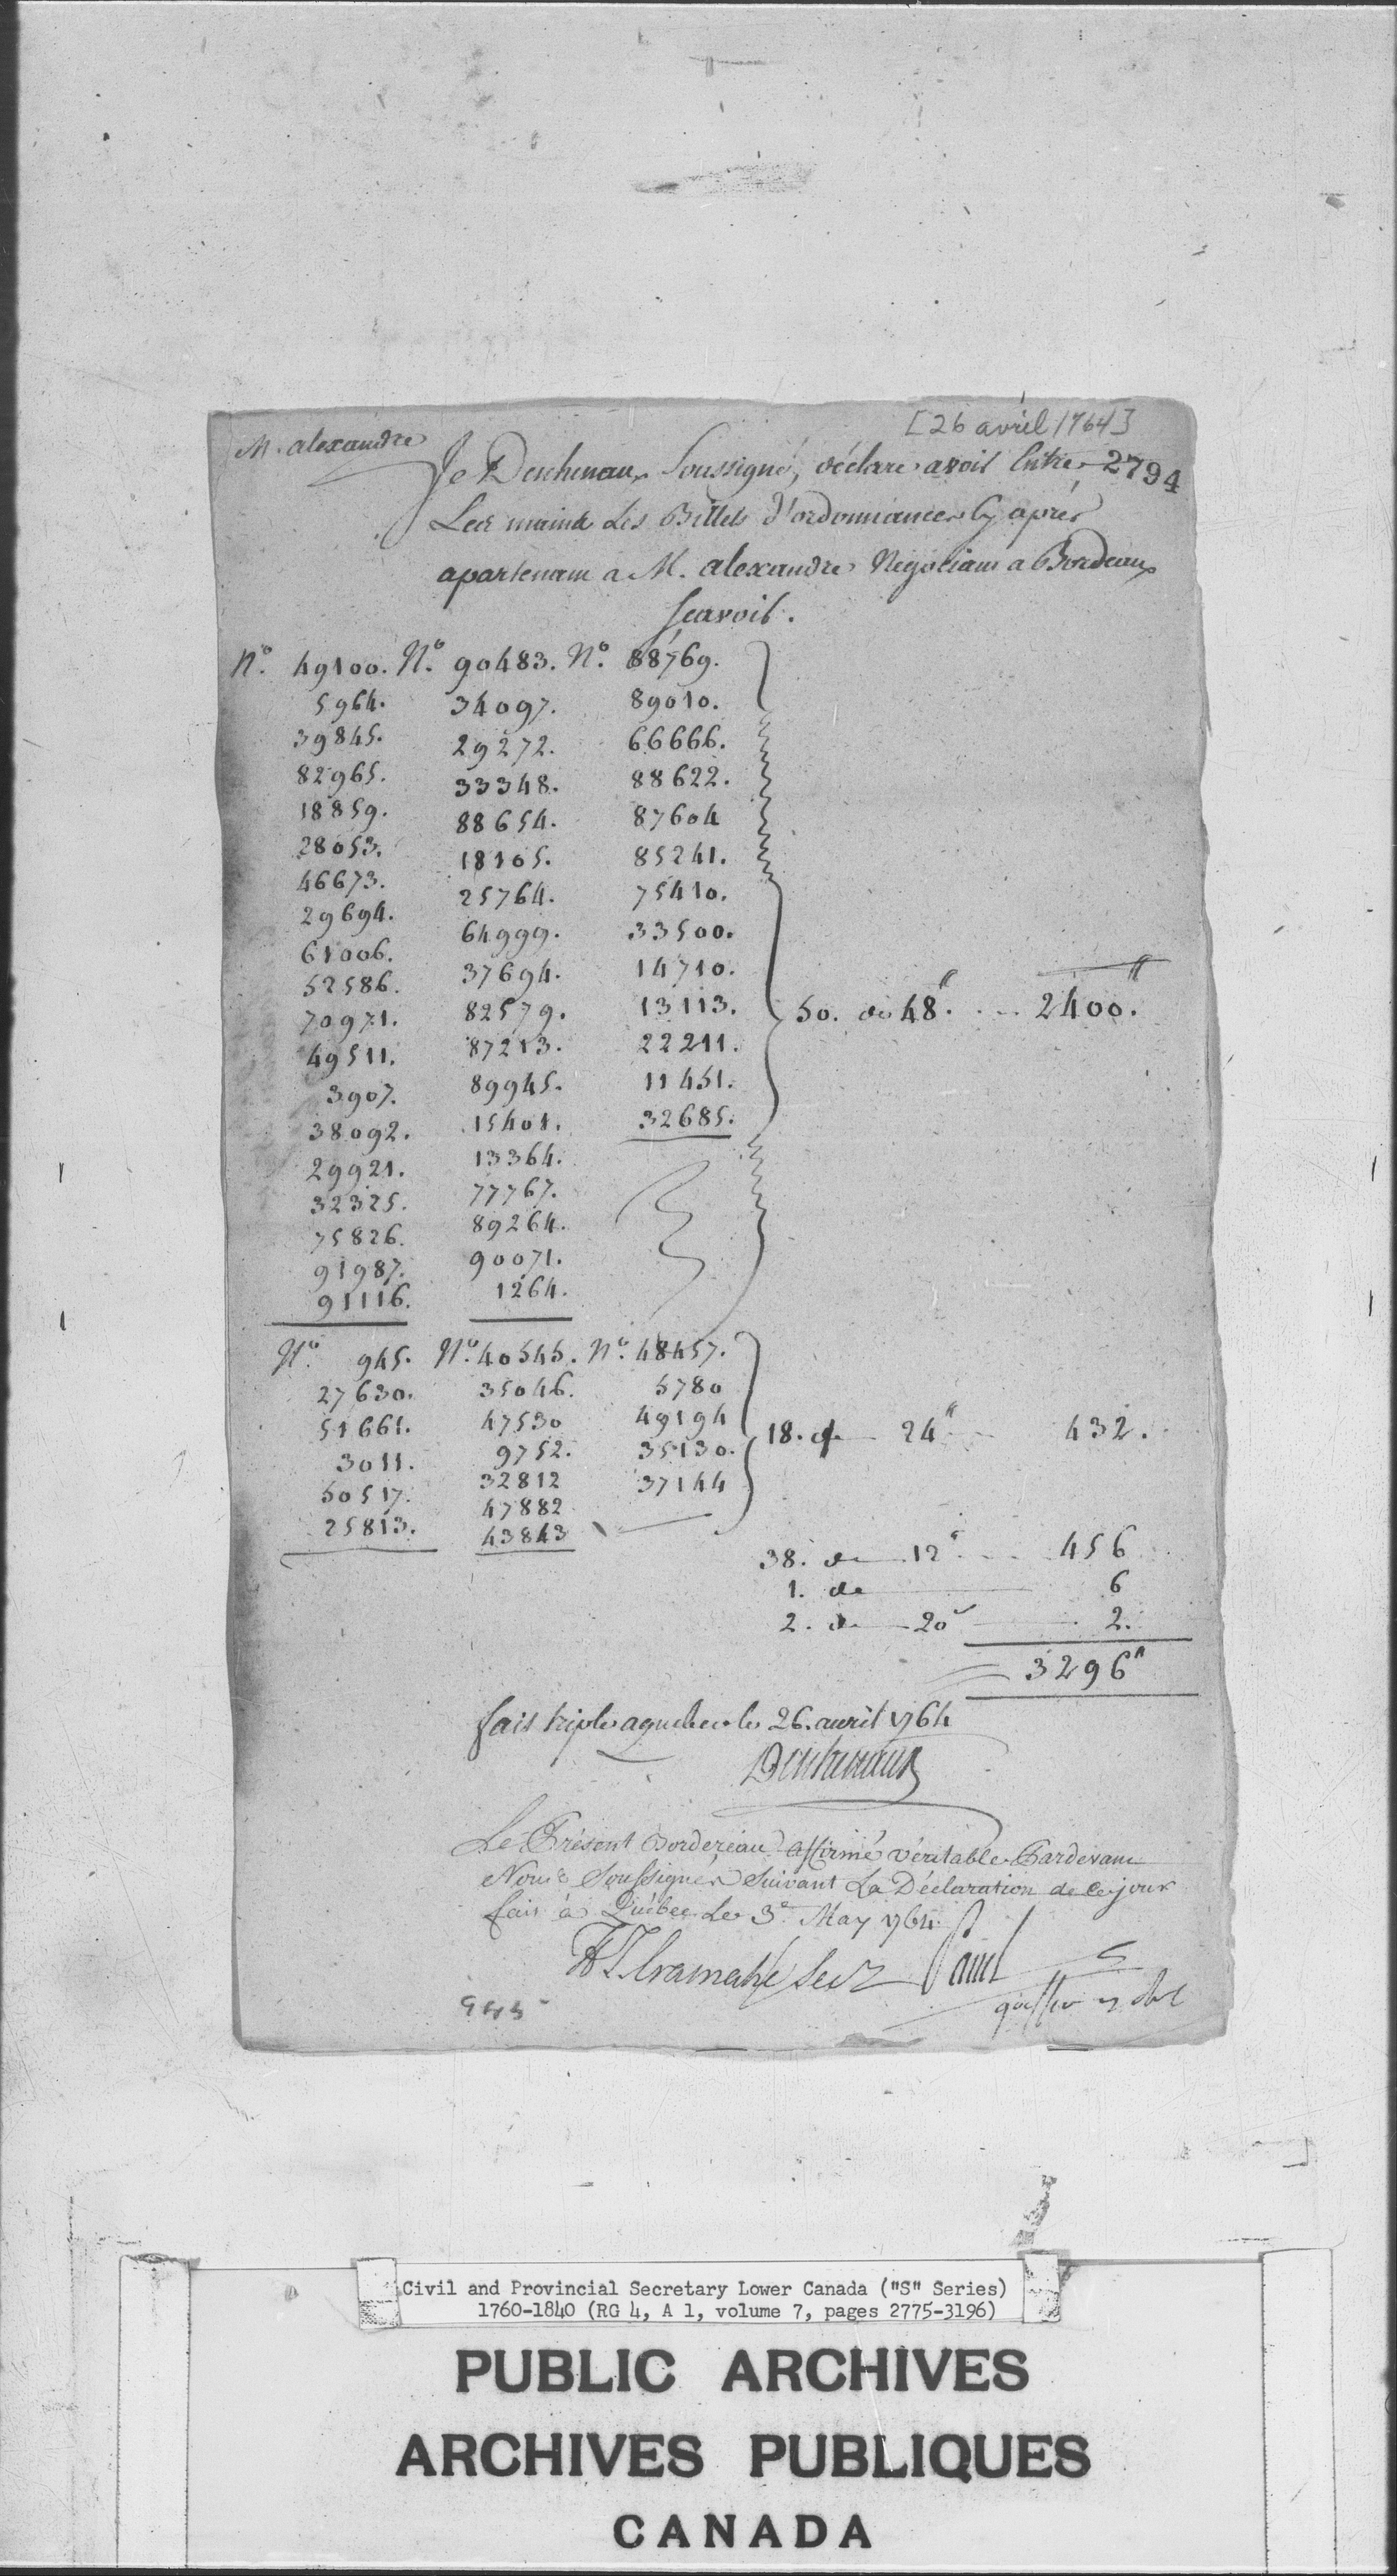 [26 avril 1764]
M. alexandre
Je Deschenaux Soussigné, déclare avoir Entre 2794
Les mains Les Billets d'ordonnances Cy après
apartenant a M. alexandre Negotiant a Bordeaux
Scavoir.
No. 49100. No. 90483. No. 88769.
5964. 34097. 89010.
39845. 29272. 66666.
82965. 33348. 88622.
18859. 88654. 87604
28053. 18105. 85241.
46673. 25764. 75410.
29694. 64999. 33500.
61006. 37694. 14710.
52586. 82579. 13113. 50. de 48tt. ... 2400tt.
70971. 87213. 22211.
49511. 89945. 11451.
3907. 15401. 32685.
38092. 13364.
29921. 77767.
32325. 89264.
75826. 90071.
91987. 1264.
91116.
No. 945. No. 40545. No. 48457.
27630. 35046. 5780
51661. 47530 49194 18. de 24tt ... 432.
3011. 9752. 35130.
50517. 32812 37144
25813. 47882
43843
38. de 12tt ... 456
1. de 6
2. de 20s 2.
3296tt
fait triple a quebec le 26. avril 1764
Deschenaux
Le Présent Bordereau affirmé véritable Pardevant
Nous Soussignés Suivant La Déclaration de ce jour
fait à Québec Le 3e. May 1764.
H T Cramahé Secr Panet
Civil and Provincial Secretary Lower Canada ("S" Series)
1760-1840 (RG 4, A 1, volume 7, pages 2775-3196)
PUBLIC ARCHIVES
ARCHIVES PUBLIQUES
CANADA